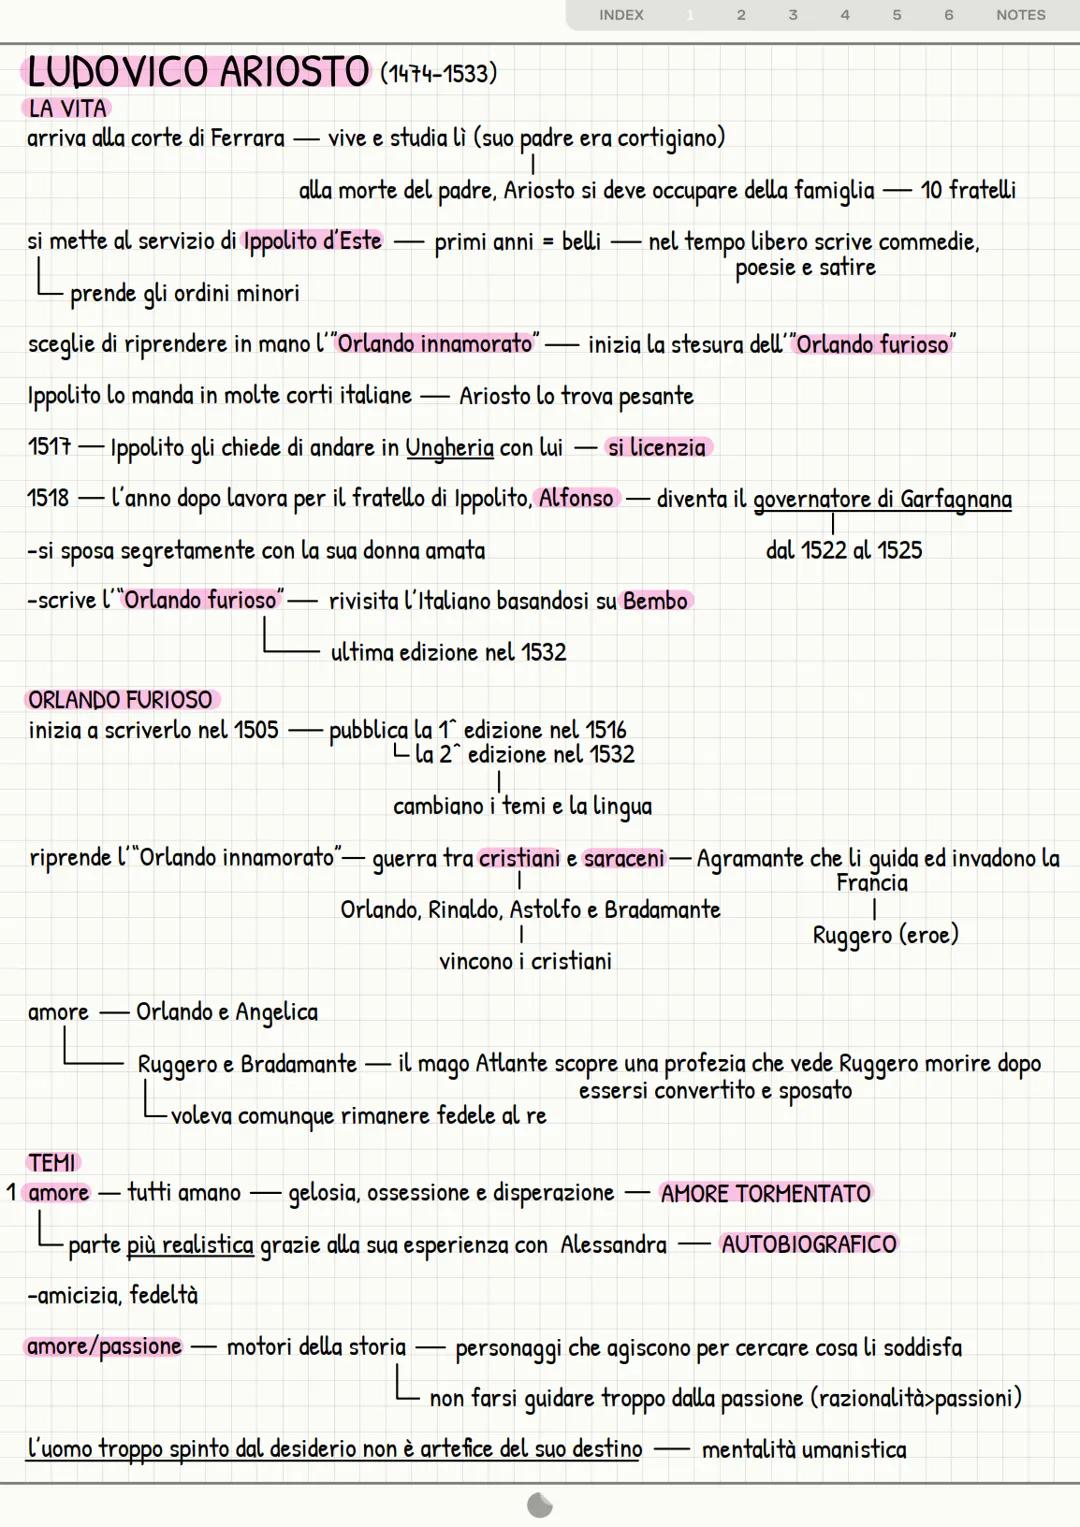 INDEX 1 2 3 4 5 6 NOTES
LUDOVICO ARIOSTO (1474-1533)
LA VITA
arriva alla corte di Ferrara — vive e studia lì (suo padre era cortigiano)
alla morte del padre, Ariosto si deve occupare della famiglia — 10 fratelli
si mette al servizio di Ippolito d'Este — primi anni = belli — nel tempo libero scrive commedie,
poesie e satire
prende gli ordini minori
sceglie di riprendere in mano l'"Orlando innamorato" — inizia la stesura dell'"Orlando furioso"
Ippolito lo manda in molte corti italiane — Ariosto lo trova pesante
1517 — Ippolito gli chiede di andare in Ungheria con lui — si licenzia
1518 — l'anno dopo lavora per il fratello di Ippolito, Alfonso — diventa il governatore di Garfagnana
-si sposa segretamente con la sua donna amata dal 1522 al 1525
-scrive l'"Orlando furioso" — rivisita l'Italiano basandosi su Bembo
ultima edizione nel 1532
ORLANDO FURIOSO
inizia a scriverlo nel 1505 — pubblica la 1^ edizione nel 1516
la 2^ edizione nel 1532
cambiano i temi e la lingua
riprende l'"Orlando innamorato" — guerra tra cristiani e saraceni — Agramante che li guida ed invadono la
Francia
Orlando, Rinaldo, Astolfo e Bradamante
Ruggero (eroe)
vincono i cristiani
amore — Orlando e Angelica
Ruggero e Bradamante — il mago Atlante scopre una profezia che vede Ruggero morire dopo
essersi convertito e sposato
voleva comunque rimanere fedele al re
TEMI
1 amore — tutti amano — gelosia, ossessione e disperazione — AMORE TORMENTATO
parte più realistica grazie alla sua esperienza con Alessandra — AUTOBIOGRAFICO
-amicizia, fedeltà
amore/passione — motori della storia — personaggi che agiscono per cercare cosa li soddisfa
non farsi guidare troppo dalla passione (razionalità>passioni)
l'uomo troppo spinto dal desiderio non è artefice del suo destino — mentalità umanistica